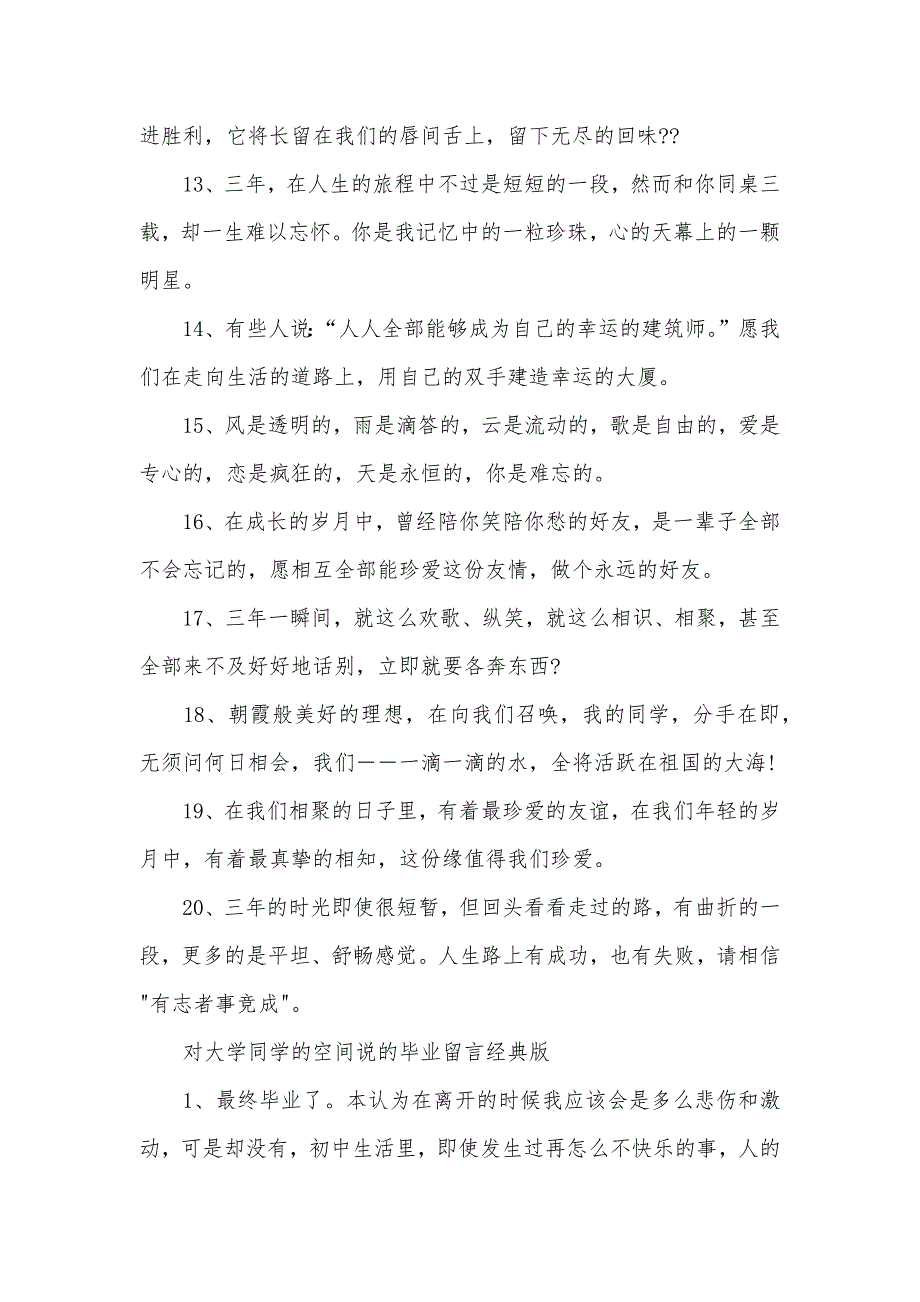 进胜利，它将长留在我们的唇间舌上，留下无尽的回味??
13、三年，在人生的旅程中不过是短短的一段，然而和你同桌三
载，却一生难以忘怀。你是我记忆中的一粒珍珠，心的天幕上的一颗
明星。
14、有些人说：“人人全部能够成为自己的幸运的建筑师。”愿我
们在走向生活的道路上，用自己的双手建造幸运的大厦。
15、风是透明的，雨是滴答的，云是流动的，歌是自由的，爱是
专心的，恋是疯狂的，天是永恒的，你是难忘的。
16、在成长的岁月中，曾经陪你笑陪你愁的好友，是一辈子全部
不会忘记的，愿相互全部能珍爱这份友情，做个永远的好友。
17、三年一瞬间，就这么欢歌、纵笑，就这么相识、相聚，甚至
全部来不及好好地话别，立即就要各奔东西?
18、朝霞般美好的理想，在向我们召唤，我的同学，分手在即，
无须问何日相会，我们――一滴一滴的水，全将活跃在祖国的大海!
19、在我们相聚的日子里，有着最珍爱的友谊，在我们年轻的岁
月中，有着最真挚的相知，这份缘值得我们珍爱。
20、三年的时光即使很短暂，但回头看看走过的路，有曲折的一
段，更多的是平坦、舒畅感觉。人生路上有成功，也有失败，请相信
"有志者事竞成"。
对大学同学的空间说的毕业留言经典版
1、最终毕业了。本认为在离开的时候我应该会是多么悲伤和激
动，可是却没有，初中生活里，即使发生过再怎么不快乐的事，人的